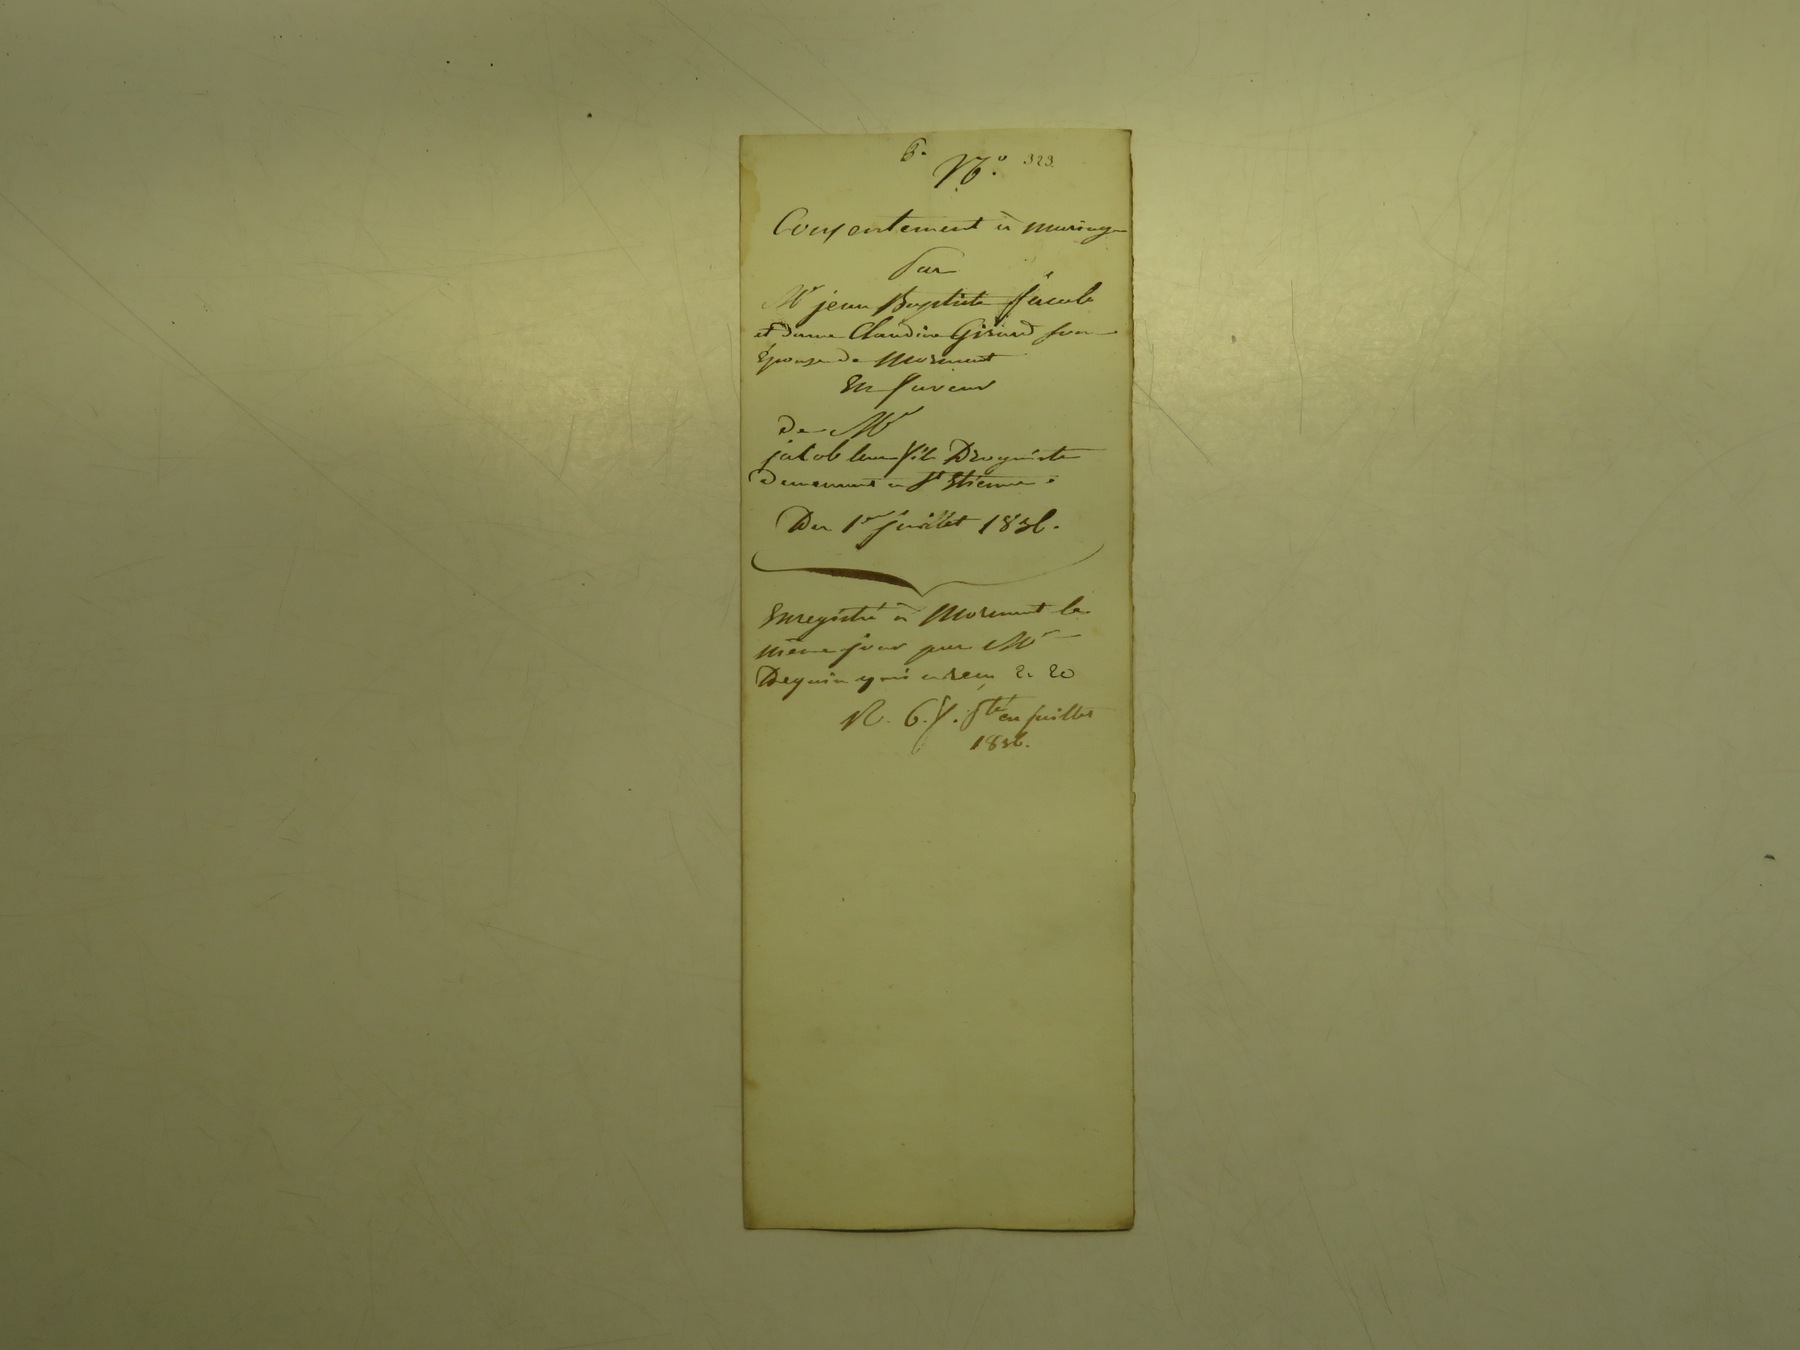 6.
N.º 323
Consentement à mariage
Par
Mr jean Baptiste Jacob
et dame Claudine Girard son
Epouse de Mornant
En faveur
De Mr
jacob leur fils Droguiste
Demeurant à St Etienne.
Du 1er juillet 1836.
Enregistré à Mornant le
même jour par Mr
Deguin qui a reçu 2. 20
R. 6. f. en juillet
1836.